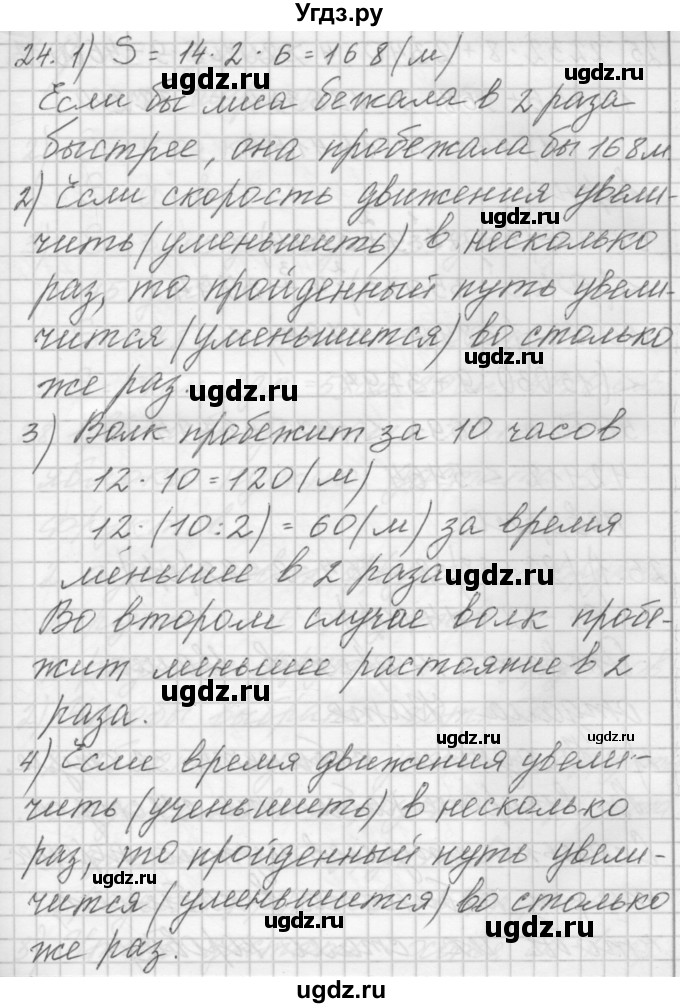 Угдз.ру
24. 1) S = 14 · 2 · 6 = 168 (м)
ugdz.ru ugdz.ru
Если бы лиса бежала в 2 раза
быстрее, она пробежала бы 168 м
2) Если скорость движения увели-
ugdz.ru
чить (уменьшить) в несколько
раз, то пройденный путь увели-
чится (уменьшится) во столько
ugdz.ru
же раз.
ugdz.ru
3) Волк пробежит за 10 часов
12 · 10 = 120 (м)
12 · (10 : 2) = 60 (м) за время
меньшее в 2 раза
ugdz.ru
Во втором случае волк пробе-
жит меньшее растояние в 2
ugdz.ru
раза.
ugdz.ru
4) Если время движения увели-
чить (ученьшить) в несколько
раз, то пройденный путь увели-
ugdz.ru
чится (уменьшится) во столько
ugdz.ru ugdz.ru
же раз.
ugdz.ru